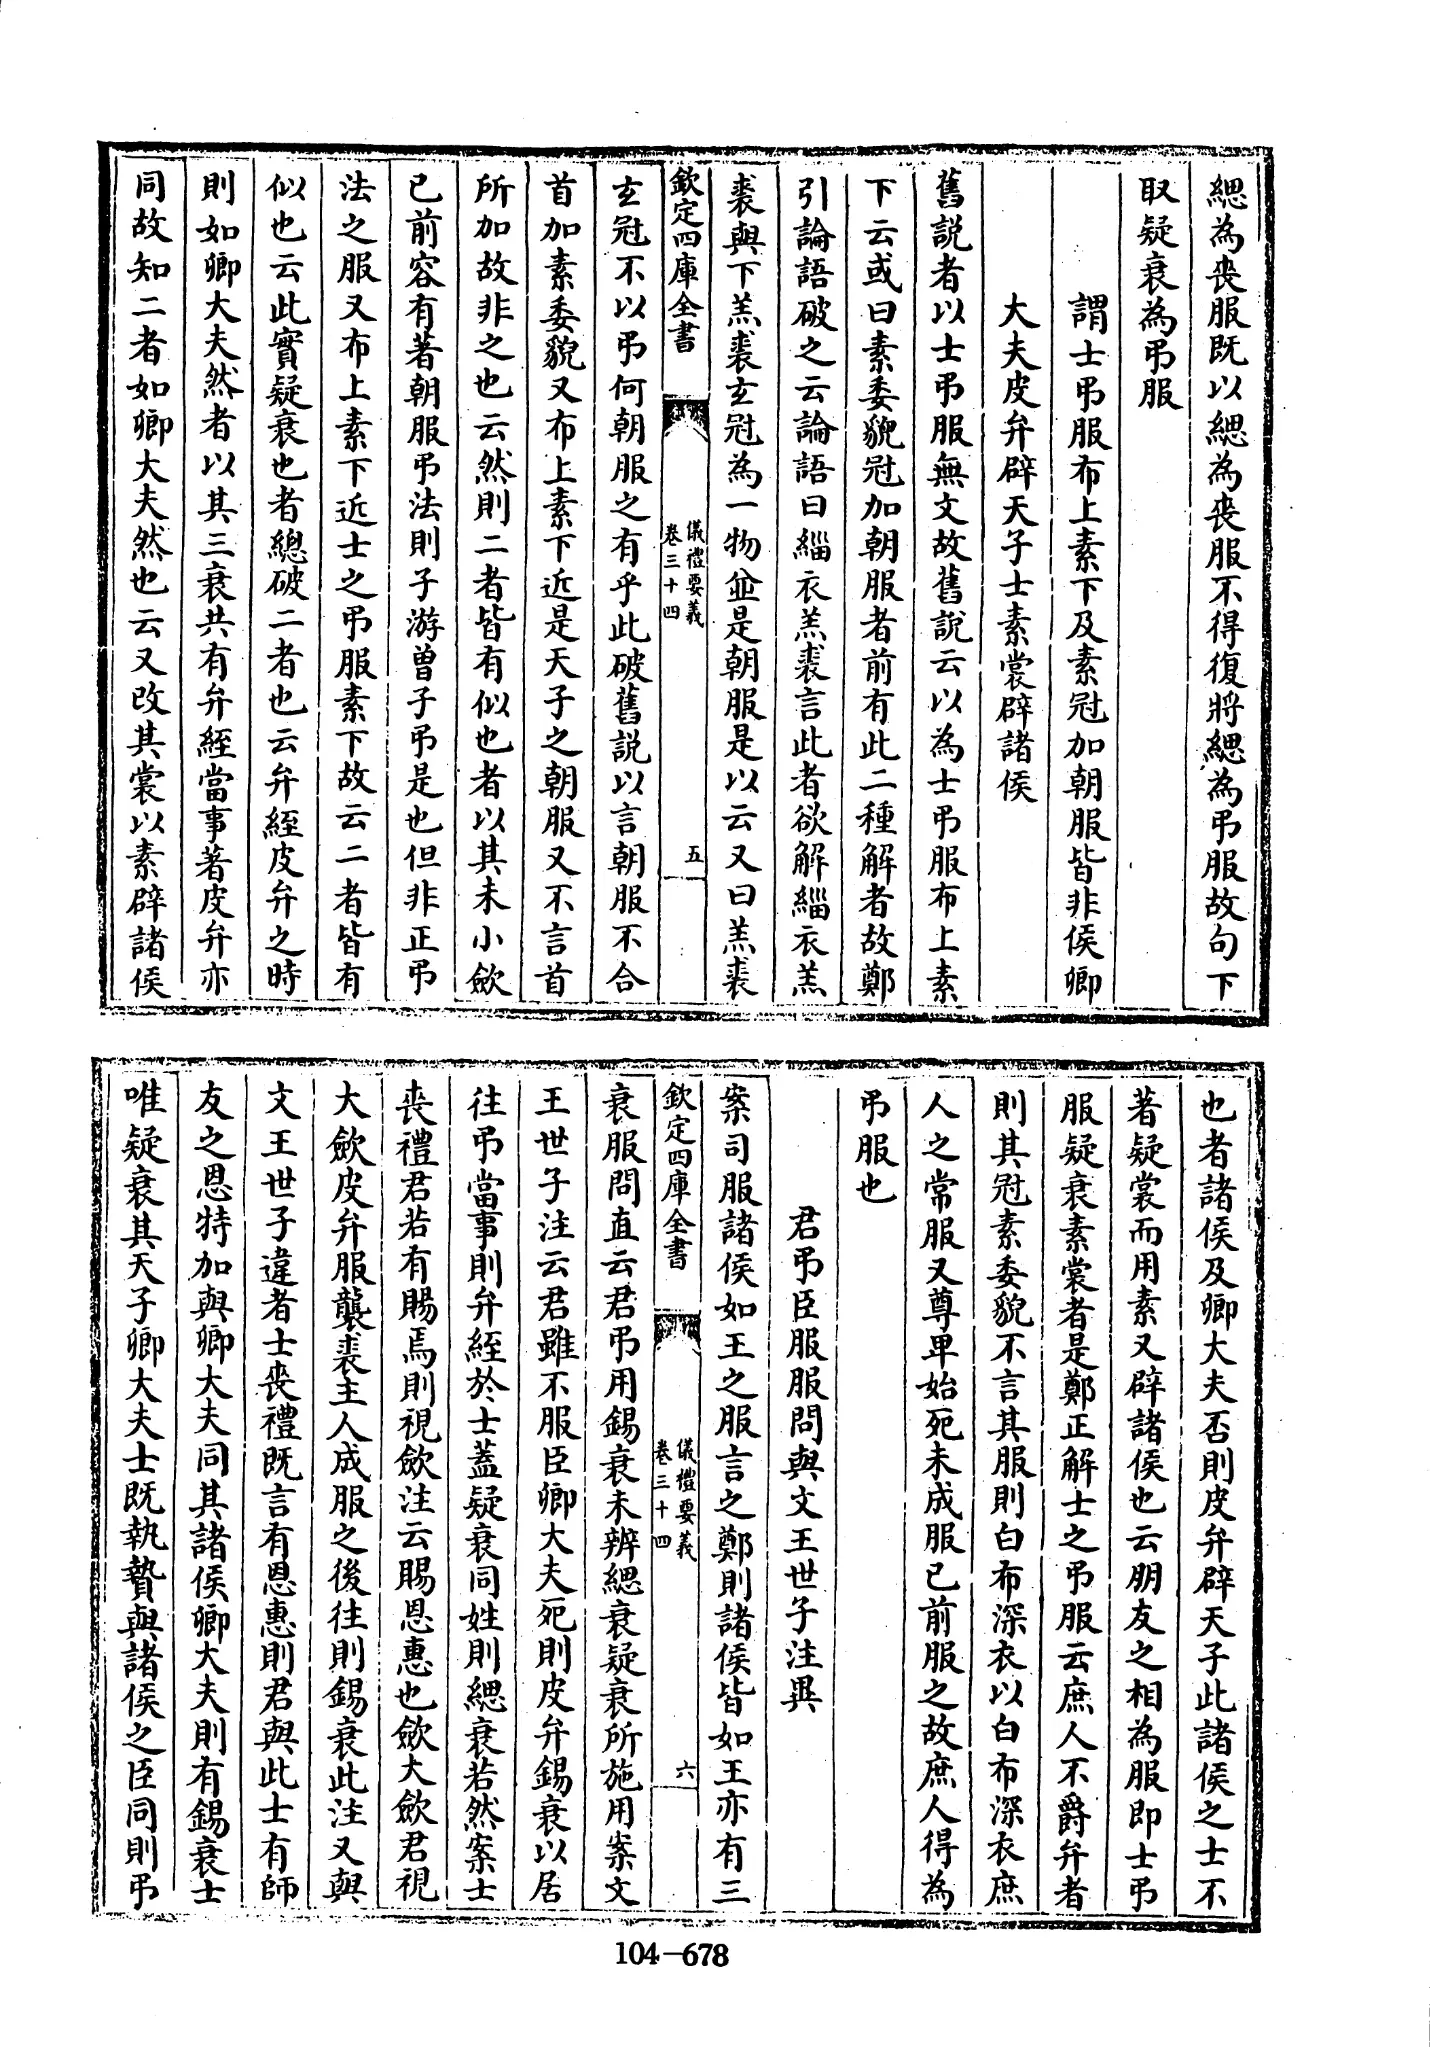 緦為喪服既以緦為喪服不得復將緦為弔服故句下
取疑衰為弔服
謂士弔服布上素下及素冠加朝服皆非侯卿
大夫皮弁辟天子士素裳辟諸侯
舊説者以士弔服無文故舊説云以為士弔服布上素
下云或曰素委貌冠加朝服者前有此二種解者故鄭
引論語破之云論語曰緇衣羔裘言此者欲解緇衣羔
裘與下羔裘玄冠為一物並是朝服是以云又曰羔裘
欽定四庫全書
儀禮要義
卷三十四
五
玄冠不以弔何朝服之有乎此破舊説以言朝服不合
首加素委貌又布上素下近是天子之朝服又不言首
所加故非之也云然則二者皆有似也者以其未小斂
已前容有著朝服弔法則子游曾子弔是也但非正弔
法之服又布上素下近士之弔服素下故云二者皆有
似也云此實疑衰也者總破二者也云弁絰皮弁之時
則如卿大夫然者以其三衰共有弁絰當事著皮弁亦
同故知二者如卿大夫然也云又改其裳以素辟諸侯
也者諸侯及卿大夫否則皮弁辟天子此諸侯之士不
著疑裳而用素又辟諸侯也云朋友之相為服即士弔
服疑衰素裳者是鄭正解士之弔服云庶人不爵弁者
則其冠素委貌不言其服則白布深衣以白布深衣庶
人之常服又尊卑始死未成服已前服之故庶人得為
弔服也
君弔臣服服問與文王世子注異
案司服諸侯如王之服言之鄭則諸侯皆如王亦有三
欽定四庫全書
儀禮要義
卷三十四
六
衰服問直云君弔用錫衰未辨緦衰疑衰所施用案文
王世子注云君雖不服臣卿大夫死則皮弁錫衰以居
往弔當事則弁絰於士蓋疑衰同姓則緦衰若然案士
喪禮君若有賜焉則視斂注云賜恩惠也斂大斂君視
大斂皮弁服襲裘主人成服之後往則錫衰此注又與
文王世子違者士喪禮既言有恩惠則君與此士有師
友之恩特加與卿大夫同其諸侯卿大夫則有錫衰士
唯疑衰其天子卿大夫士既執贄與諸侯之臣同則弔
104-678